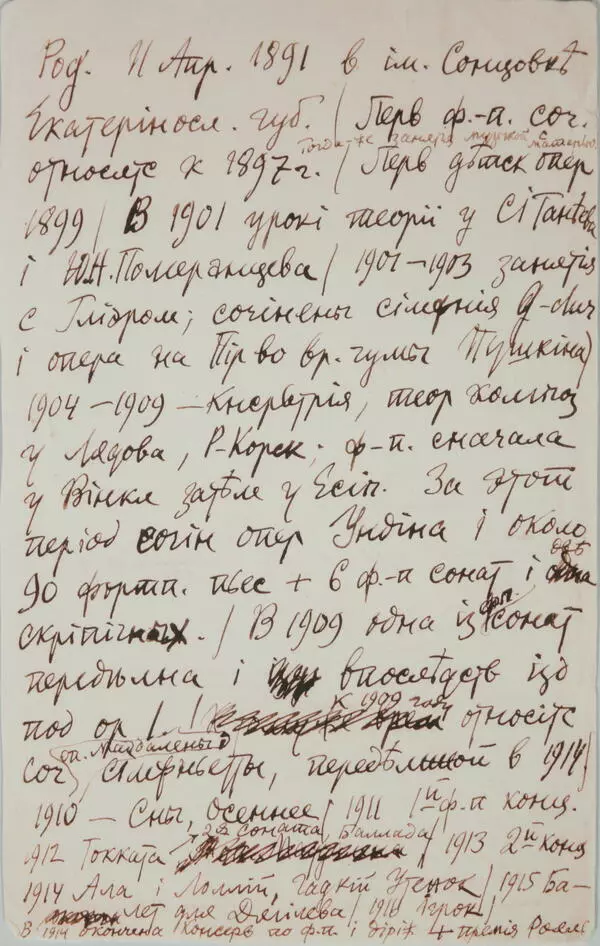 Род. 11 Апр. 1891 в ім. Сонцовкѣ
Екатеріносл. губ. / Перв ф.-п. соч.
Тогда же занятія музыкой с матерью.
относятс к 1897 г. / Перв дѣтск опер
1899 / В 1901 урокі теоріі у С І Танѣева
і Ю.Н. Померанцева / 1901–1903 занятія
с Гліэром; сочінены сімфнія G-dur
і опера на Пір во вр. чумы Пушкіна /
1904 – 1909 – Кнсрвтрія, теор композ
у Лядова, Р-Корск; ф-п. сначала
у Вінкл затѣм у Есіп. За этот
період сочін опер Ундіна і около
90 фортп. пьес + 6 ф.-п сонат і двѣ
скріпічных. / В 1909 одна із ф.п. сонат
передѣлна і впослѣдств ізд
под op 1. / К 1909 году относітс
соч. оп. Маддалены і Сімфньетты, передѣлной в 1914 /
1910 – Сны, Осеннее / 1911 1й ф-п конц.
1912 Токката, 2я соната, Баллада / 1913 2й конц
1914 Ала і Лоллій, Гадкій Утенок / 1915 Ба-
лет для Дягілева / 1916 Ігрок /
В 1914 окончена Консерв по ф.п і діріж + премія Рояль